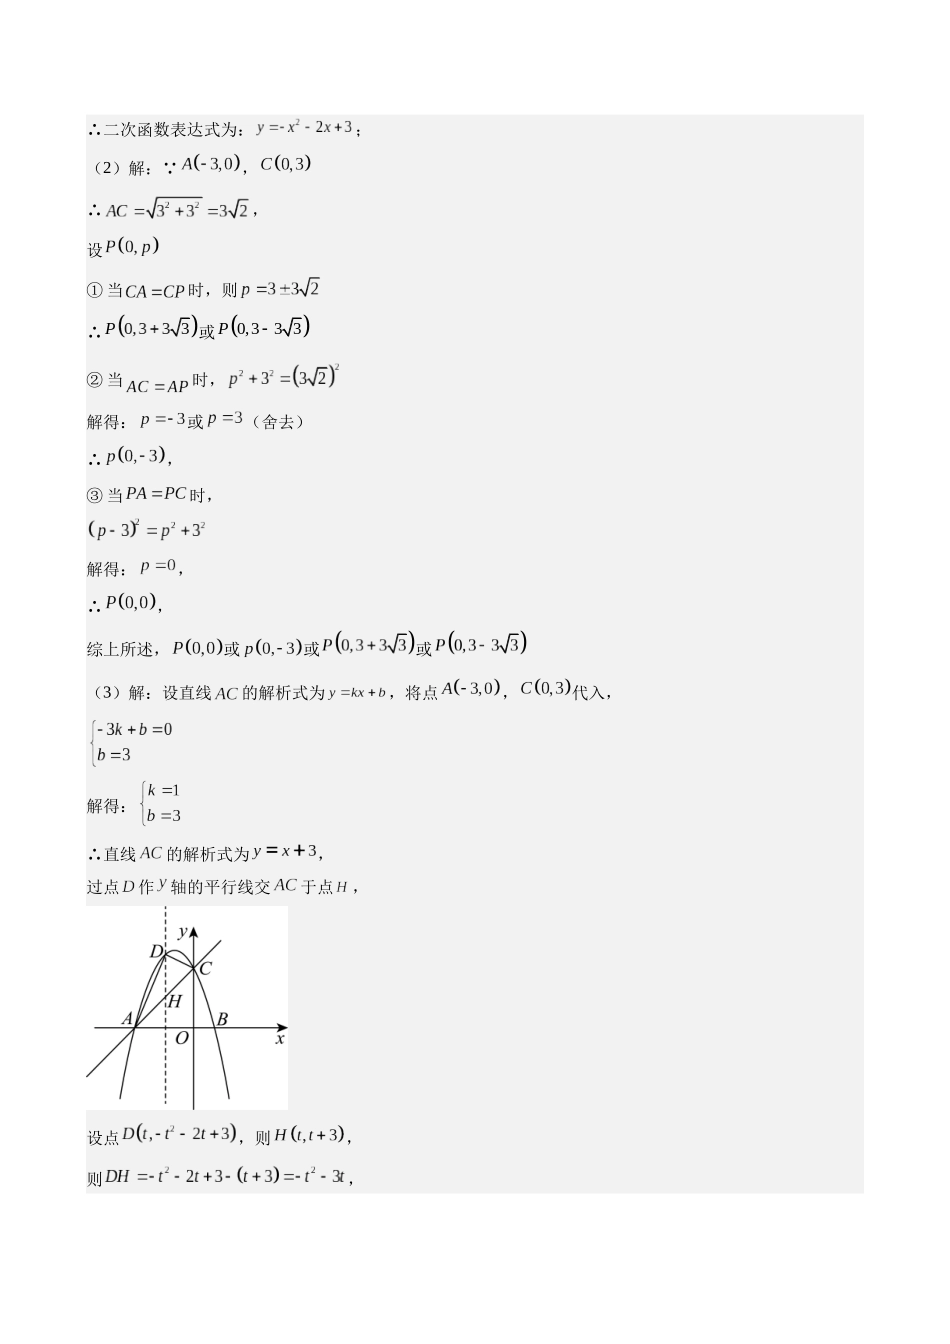 ∴二次函数表达式为：y=-x²-2x+3；
（2）解：∵A(-3,0)，C(0,3)
∴AC=√(3²+3²)=3√2，
设P(0,p)
① 当CA=CP时，则p=3±3√2
∴P(0,3+3√3)或P(0,3-3√3)
② 当AC=AP时，p²+3²=(3√2)²
解得：p=-3或p=3（舍去）
∴p(0,-3)，
③ 当PA=PC时，
(p-3)²=p²+3²
解得：p=0，
∴P(0,0)，
综上所述，P(0,0)或p(0,-3)或P(0,3+3√3)或P(0,3-3√3)
（3）解：设直线AC的解析式为y=kx+b，将点A(-3,0)，C(0,3)代入，
{-3k+b=0
b=3
解得：{k=1
b=3
∴直线AC的解析式为y=x+3，
过点D作y轴的平行线交AC于点H，
y
D
C
H
A
B
O
x
设点D(t,-t²-2t+3)，则H(t,t+3)，
则DH=-t²-2t+3-(t+3)=-t²-3t，